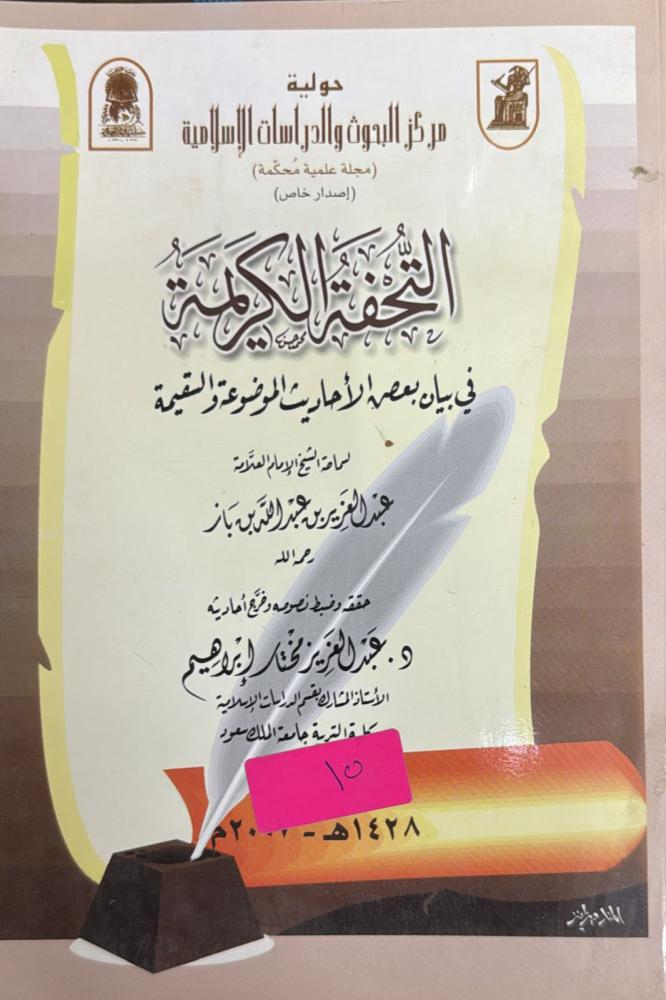 حولية
مركز البحوث والدراسات الإسلامية
(مجلة علمية مُحكّمة)
(إصدار خاص)
التُّحْفَةُ الكَرِيمَةُ
في بيان بعض الأحاديث الموضوعة والسقيمة
لسماحة الشيخ الإمام العلّامة
عَبْد العَزِيز بن عَبْد اللَّه بن بَاز
رحمه الله
حققه وضبط نصوصه وخرَّج أحاديثه
د. عَبْد العَزِيز مُخْتَار إبْرَاهِيم
الأستاذ المشارك بقسم الدراسات الإسلامية
كلية التربية جامعة الملك سعود
١٥
١٤٢٨هـ - ٢٠٠٧م